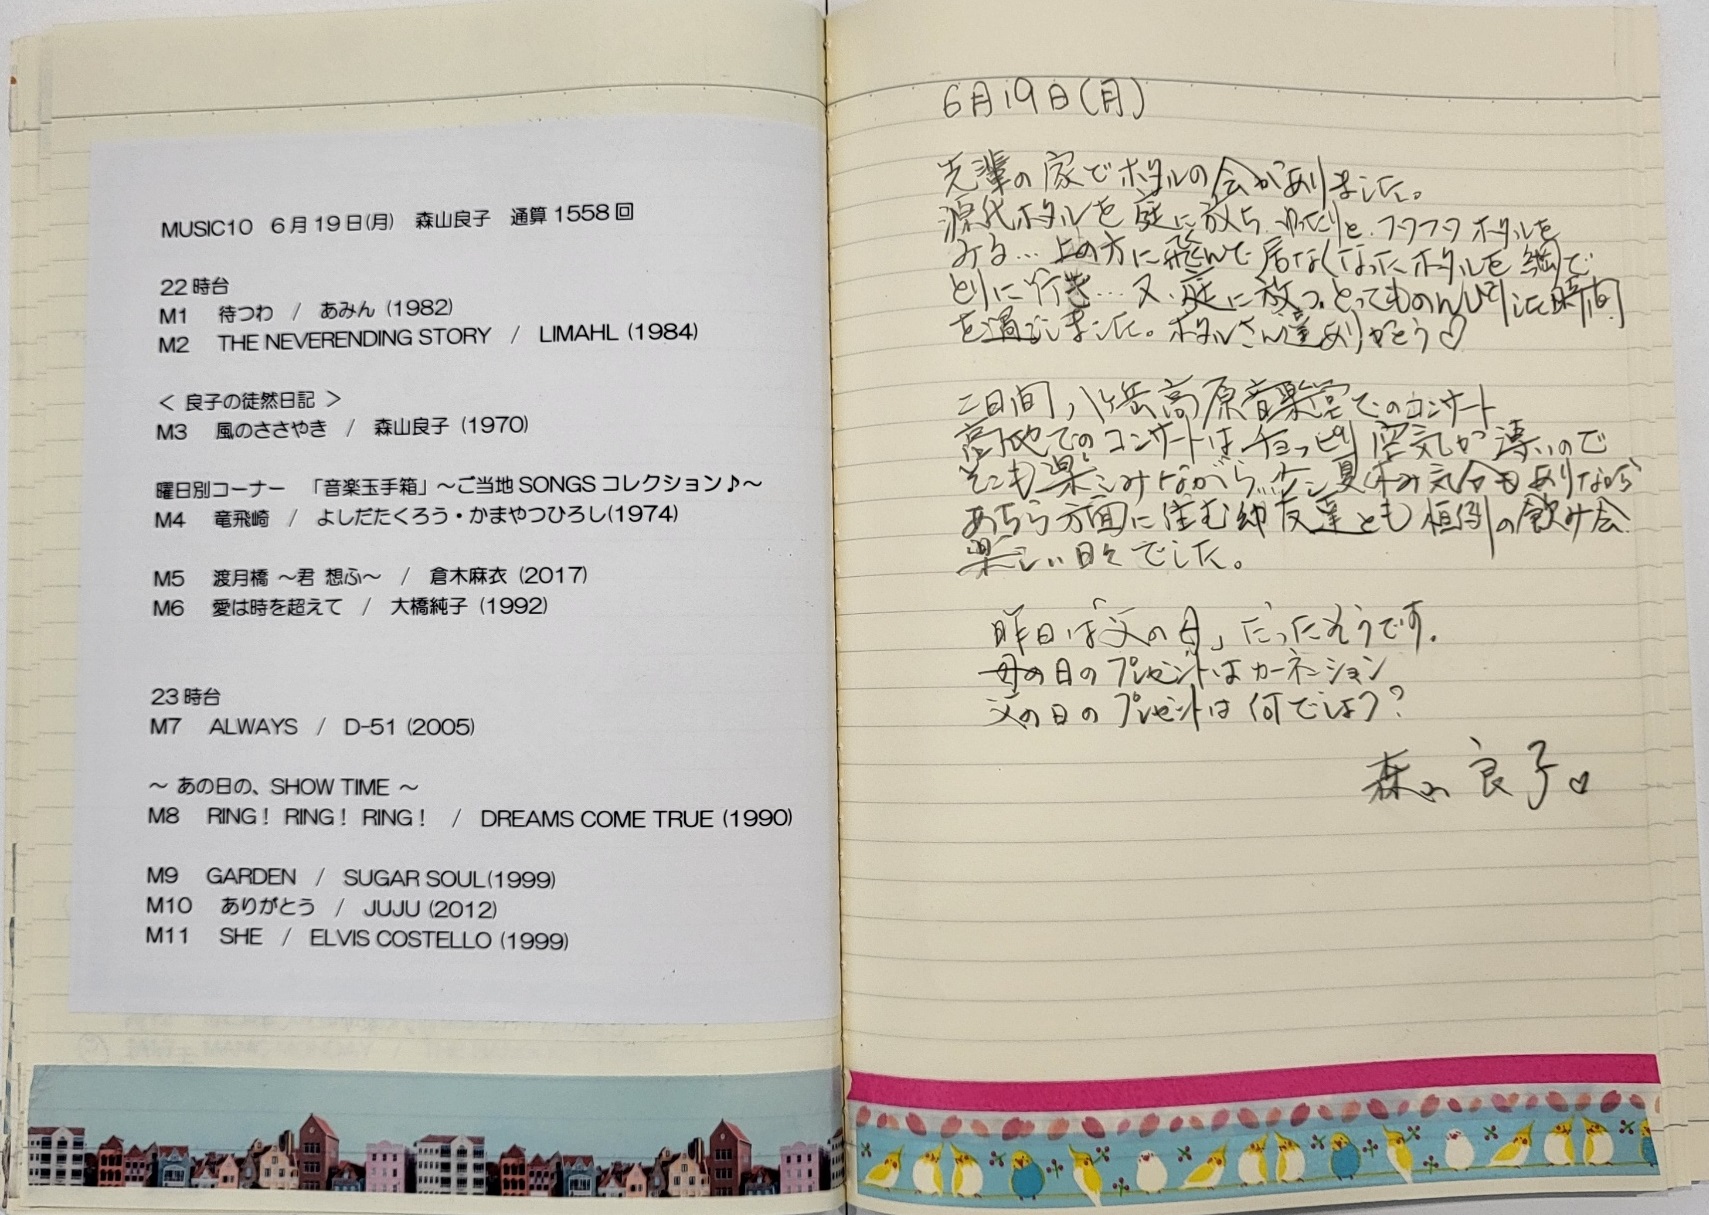 MUSIC10 6月19日(月) 森山良子 通算1558回
22時台
M1 待つわ / あみん (1982)
M2 THE NEVERENDING STORY / LIMAHL (1984)
< 良子の徒然日記 >
M3 風のささやき / 森山良子 (1970)
曜日別コーナー 「音楽玉手箱」～ご当地SONGSコレクション♪～
M4 竜飛崎 / よしだたくろう・かまやつひろし(1974)
M5 渡月橋 ～君 想ふ～ / 倉木麻衣 (2017)
M6 愛は時を超えて / 大橋純子 (1992)
23時台
M7 ALWAYS / D-51 (2005)
～ あの日の、SHOW TIME ～
M8 RING! RING! RING! / DREAMS COME TRUE (1990)
M9 GARDEN / SUGAR SOUL(1999)
M10 ありがとう / JUJU (2012)
M11 SHE / ELVIS COSTELLO (1999)
6月19日(月)
先輩の家でホタルの会がありました。
源氏ホタルを庭に放ち、ゆったりと、フワフワホタルを
みる…上の方に飛んで居なくなったホタルを網で
とりに行き…又、庭に放つ。とってものんびりした時間
を過ごしました。ホタルさん達ありがとう♡
二日間、八ヶ岳高原音楽堂でのコンサート
高地でのコンサートはチョッピリ空気が薄いので
そこも楽しみながら、少し夏休み気分もありながら
あちら方面に住む幼友達とも恒例の飲み会
楽しい日々でした。
昨日は「父の日」だったそうです。
母の日のプレゼントはカーネーション
父の日のプレゼントは何でしょう?
森山良子♡